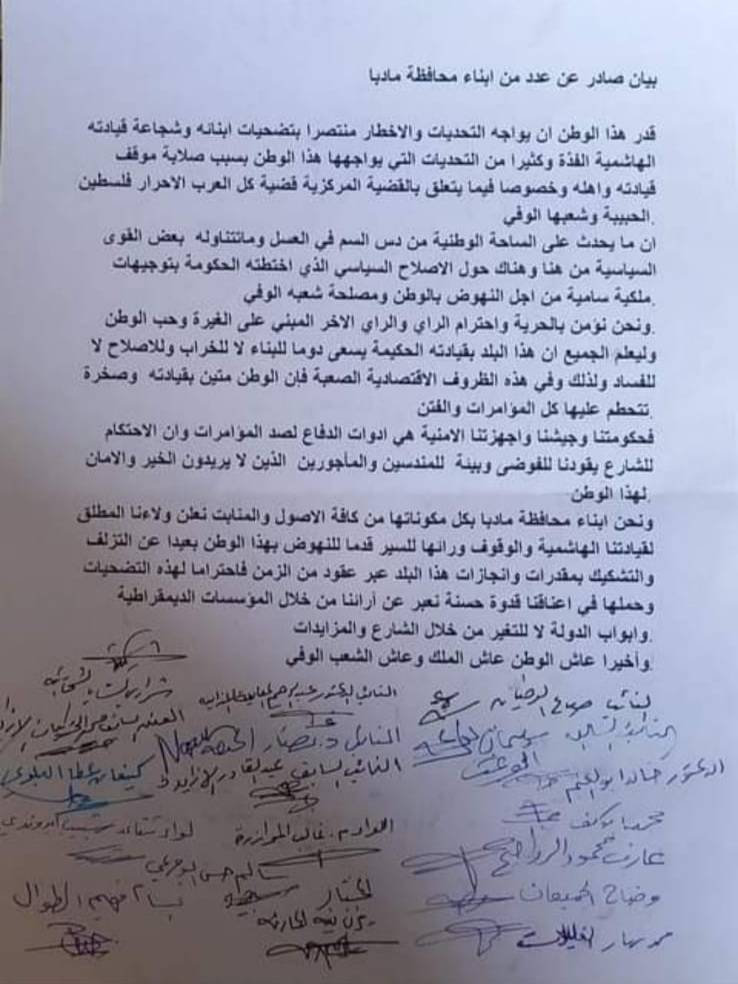 بيان صادر عن عدد من ابناء محافظة مادبا
قدر هذا الوطن ان يواجه التحديات والاخطار منتصرا بتضحيات ابنائه وشجاعة قيادته
الهاشمية الفذة وكثيرا من التحديات التي يواجهها هذا الوطن بسبب صلابة موقف
قيادته واهله وخصوصا فيما يتعلق بالقضية المركزية قضية كل العرب الاحرار فلسطين
.الحبيبة وشعبها الوفي
ان ما يحدث على الساحة الوطنية من دس السم في العسل وماتتناوله بعض القوى
السياسية من هنا وهناك حول الاصلاح السياسي الذي اختطته الحكومة بتوجيهات
.ملكية سامية من اجل النهوض بالوطن ومصلحة شعبه الوفي
.ونحن نؤمن بالحرية واحترام الراي والراي الاخر المبني على الغيرة وحب الوطن
وليعلم الجميع ان هذا البلد بقيادته الحكيمة يسعى دوما للبناء لا للخراب وللاصلاح لا
للفساد ولذلك وفي هذه الظروف الاقتصادية الصعبة فإن الوطن متين بقيادته وصخرة
.تتحطم عليها كل المؤامرات والفتن
فحكومتنا وجيشنا واجهزتنا الامنية هي ادوات الدفاع لصد المؤامرات وان الاحتكام
للشارع يقودنا للفوضى وبيئة للمندسين والمأجورين الذين لا يريدون الخير والامان
.لهذا الوطن
ونحن ابناء محافظة مادبا بكل مكوناتها من كافة الاصول والمنابت نعلن ولاءنا المطلق
لقيادتنا الهاشمية والوقوف ورائها للسير قدما للنهوض بهذا الوطن بعيدا عن التزلف
والتشكيك بمقدرات وانجازات هذا البلد عبر عقود من الزمن فاحتراما لهذه التضحيات
وحملها في اعناقنا قدوة حسنة نعبر عن أرائنا من خلال المؤسسات الديمقراطية
.وابواب الدولة لا للتغير من خلال الشارع والمزايدات
.وأخيرا عاش الوطن عاش الملك وعاش الشعب الوفي
النائب
النائب الدكتور
النائب السابق سليمان
النائب د. نصار
الدكتور خالد
النائب السابق عبدالقادر
كنعان عطا البلوي
محمد
اللواء م. غالب الموازرة
لواء متقاعد
عارف محمود الرواضيح
سالم حسن
وضاح
المختار
بسام فهيم الطوال
محمد نهار